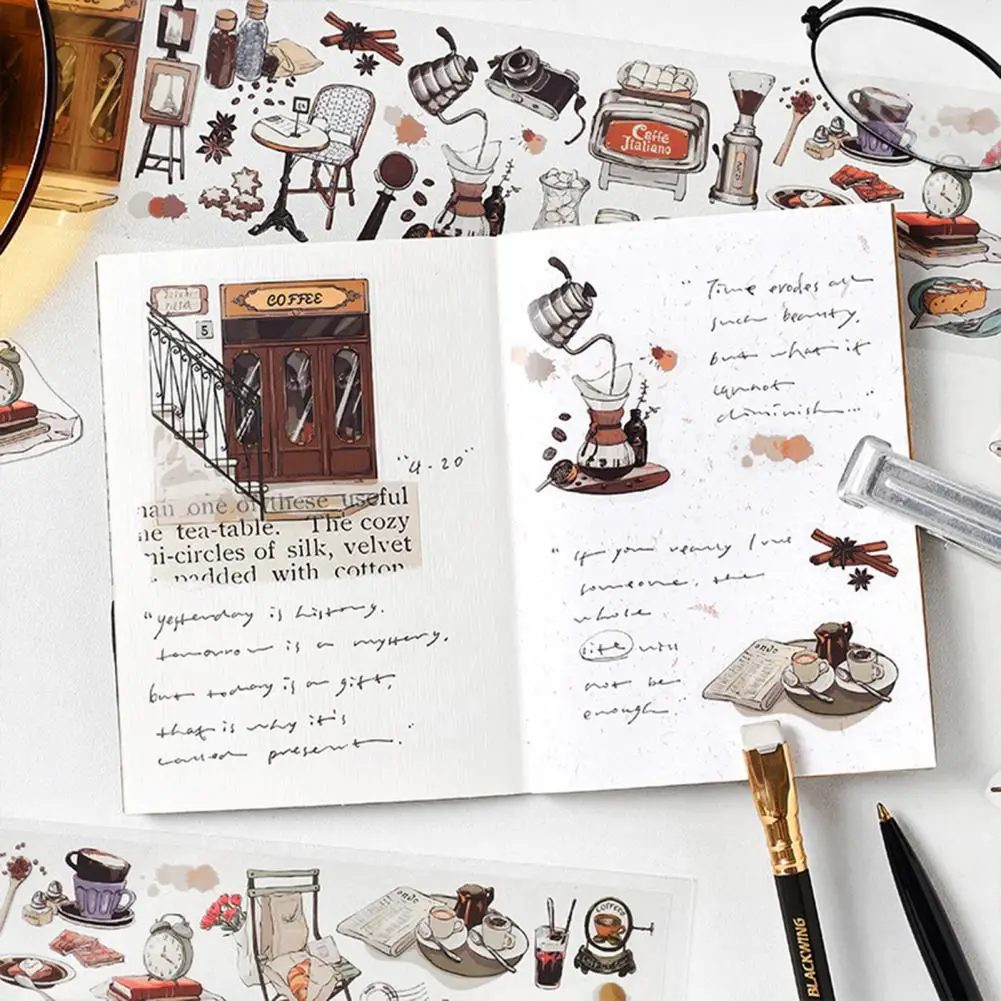 Caffè
Italiano
COFFEE
5
"4-20"
one of these useful
tea-table. The cozy
mi-circles of silk, velvet
padded with cotton
"yesterday is history.
tomorrow is a mystery.
but today is a gift,
that is why it's
called present."
"Time erodes all
such beauty,
but what it
cannot
diminish..."
"If you really love
someone, the
whole
life will
not be
enough"
BLACKWING
COFFEE